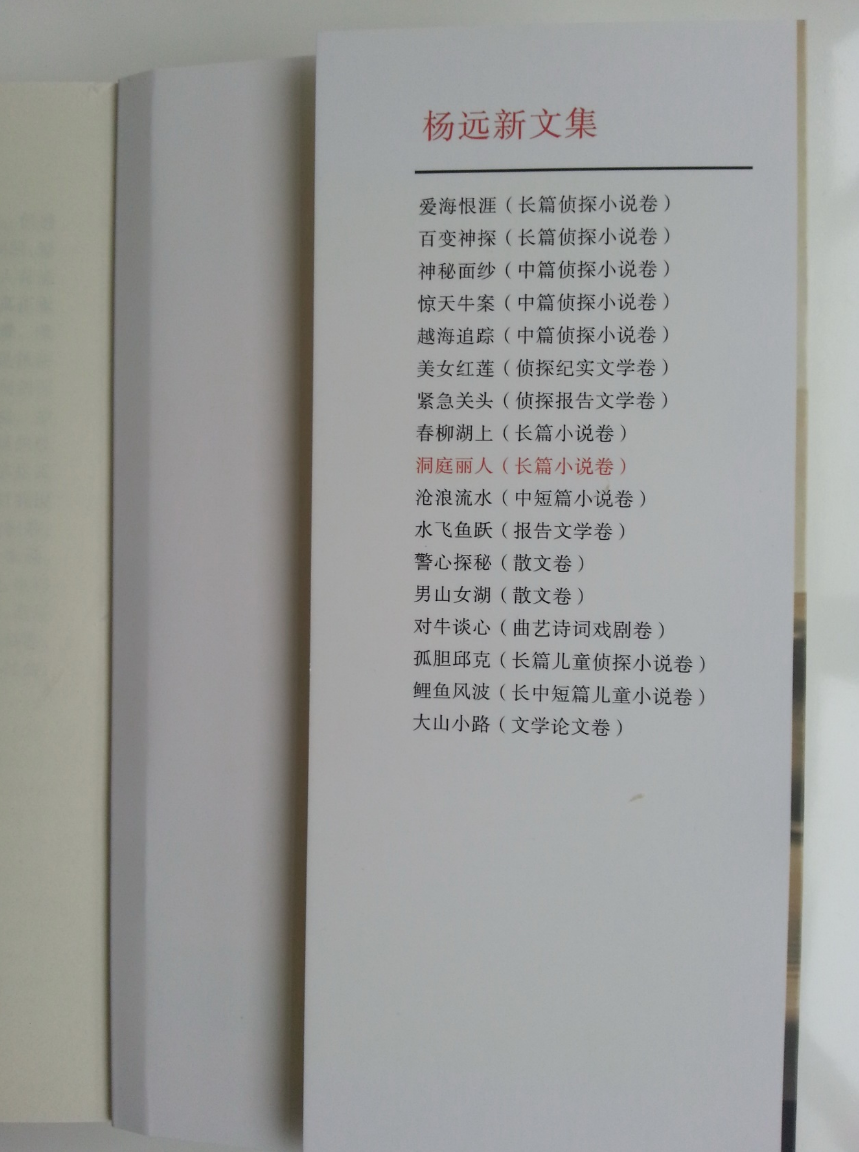 杨远新文集
爱海恨涯（长篇侦探小说卷）
百变神探（长篇侦探小说卷）
神秘面纱（中篇侦探小说卷）
惊天牛案（中篇侦探小说卷）
越海追踪（中篇侦探小说卷）
美女红莲（侦探纪实文学卷）
紧急关头（侦探报告文学卷）
春柳湖上（长篇小说卷）
洞庭丽人（长篇小说卷）
沧浪流水（中短篇小说卷）
水飞鱼跃（报告文学卷）
警心探秘（散文卷）
男山女湖（散文卷）
对牛谈心（曲艺诗词戏剧卷）
孤胆邱克（长篇儿童侦探小说卷）
鲤鱼风波（长中短篇儿童小说卷）
大山小路（文学论文卷）